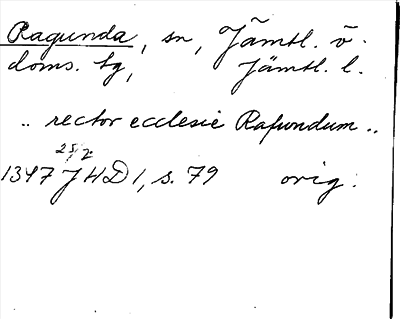 Ragunda, sn, Jämtl. ö.
doms. tg, Jämtl. l.
.. rector ecclesie Rafundum ..
28/2
1347 JHD 1, s. 79 orig.